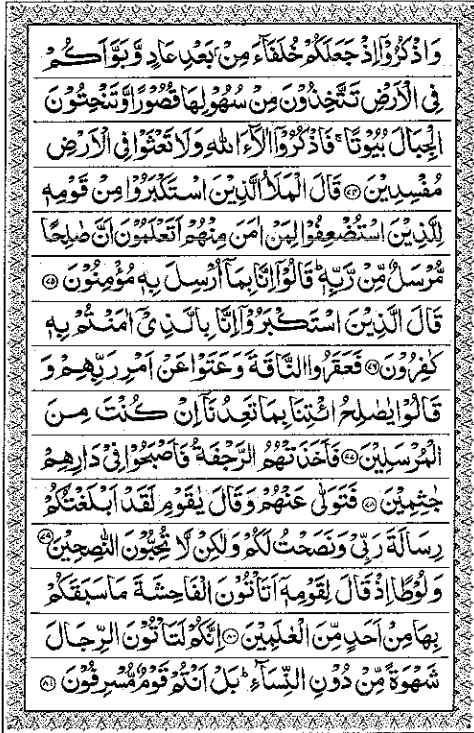 وَاذْكُرُوْٓا اِذْ جَعَلَكُمْ خُلَفَآءَ مِنْۢ بَعْدِ عَادٍ وَّبَوَّاَكُمْ
فِى الْاَرْضِ تَتَّخِذُوْنَ مِنْ سُهُوْلِهَا قُصُوْرًا وَّتَنْحِتُوْنَ
الْجِبَالَ بُيُوْتًا ۚ فَاذْكُرُوْٓا اٰلَآءَ اللّٰهِ وَلَا تَعْثَوْا فِى الْاَرْضِ
مُفْسِدِيْنَ ﴿۷۴﴾ قَالَ الْمَلَاُ الَّذِيْنَ اسْتَكْبَرُوْا مِنْ قَوْمِهٖ
لِلَّذِيْنَ اسْتُضْعِفُوْا لِمَنْ اٰمَنَ مِنْهُمْ اَتَعْلَمُوْنَ اَنَّ صٰلِحًا
مُّرْسَلٌ مِّنْ رَّبِّهٖ ؕ قَالُوْٓا اِنَّا بِمَآ اُرْسِلَ بِهٖ مُؤْمِنُوْنَ ﴿۷۵﴾
قَالَ الَّذِيْنَ اسْتَكْبَرُوْٓا اِنَّا بِالَّذِىْٓ اٰمَنْتُمْ بِهٖ
كٰفِرُوْنَ ﴿۷۶﴾ فَعَقَرُوا النَّاقَةَ وَعَتَوْا عَنْ اَمْرِ رَبِّهِمْ وَ
قَالُوْا يٰصٰلِحُ ائْتِنَا بِمَا تَعِدُنَآ اِنْ كُنْتَ مِنَ
الْمُرْسَلِيْنَ ﴿۷۷﴾ فَاَخَذَتْهُمُ الرَّجْفَةُ فَاَصْبَحُوْا فِىْ دَارِهِمْ
جٰثِمِيْنَ ﴿۷۸﴾ فَتَوَلّٰى عَنْهُمْ وَقَالَ يٰقَوْمِ لَقَدْ اَبْلَغْتُكُمْ
رِسَالَةَ رَبِّىْ وَنَصَحْتُ لَكُمْ وَلٰكِنْ لَّا تُحِبُّوْنَ النّٰصِحِيْنَ ﴿۷۹﴾
وَلُوْطًا اِذْ قَالَ لِقَوْمِهٖٓ اَتَاْتُوْنَ الْفَاحِشَةَ مَا سَبَقَكُمْ
بِهَا مِنْ اَحَدٍ مِّنَ الْعٰلَمِيْنَ ﴿۸۰﴾ اِنَّكُمْ لَتَاْتُوْنَ الرِّجَالَ
شَهْوَةً مِّنْ دُوْنِ النِّسَآءِ ؕ بَلْ اَنْتُمْ قَوْمٌ مُّسْرِفُوْنَ ﴿۸۱﴾